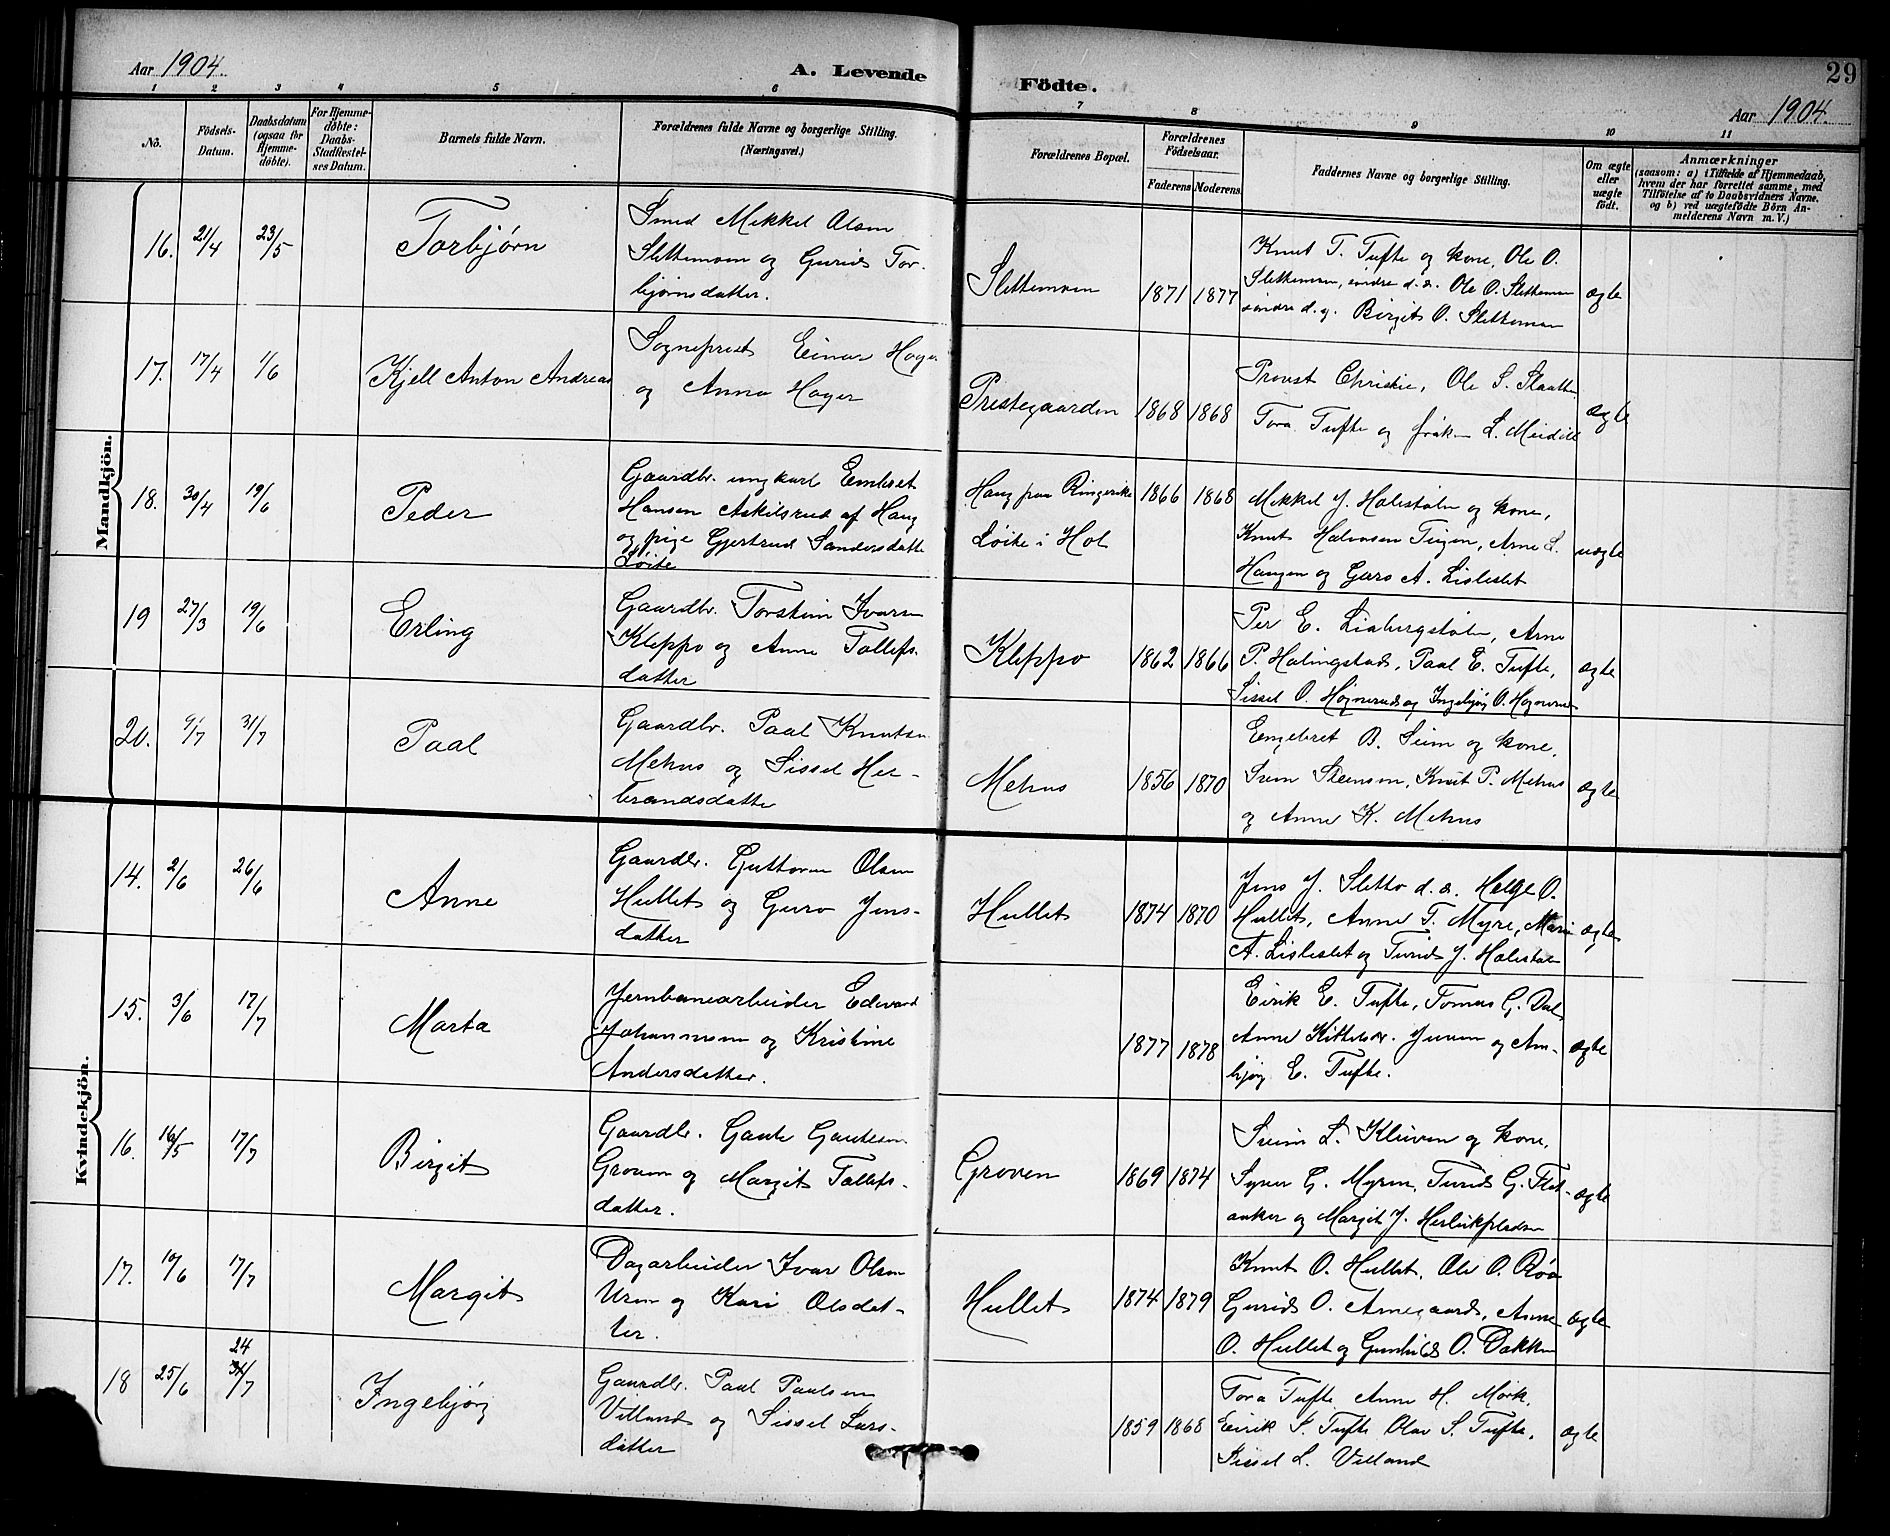 Aar 1904.
A. Levende
Födte.
29
Aar 1904.
1 2 3 4 5 6 7 8 9 10 11
No.
Födsels-Datum.
Daabsdatum (ogsaa for Hjemmedöbte).
For Hjemmedöbte: Daabs-Stadfæstelses Datum.
Barnets fulde Navn.
Forældrenes fulde Navne og borgerlige Stilling.
(Næringsvei.)
Forældrenes Bopæl.
Forældrenes Födselsaar.
Faderens Moderens
Faddernes Navne og borgerlige Stilling.
Om ægte eller uægte födt.
Anmærkninger
(saasom: a) i Tilfælde af Hjemmedaab,
hvem der har forrettet samme, med
Tilföielse af to Daabsvidners Navne.
og b) ved uægtefödte Börn An-
melderens Navn m. V.)
Mandkjön.
16. 21/4 23/5 Torbjørn
Smed Mikkel Olsen
Slettemoen og Gurid Tor-
bjørnsdatter.
Slettemoen 1871 1877
Knut T. Tufte og kone, Ole O.
Slettemoen, søndre d. æ. Ole O. Slettemoen
søndre d. y. Birgit O. Slettemoen
ægte
17. 17/4 1/6 Kjell Anton Andreas
Sogneprest Einar Hoyer
og Anna Hoyer
Prestegaarden 1868 1868
Provst Christie, Ole S. Slaatto
Tora Tufte og frøken L.
ægte
18. 30/4 19/6 Peder
Gaardbr. ungkarl Embret
Hansen Askilsrud af Haug
og pige Gjertrud Sandersdatter
Løite
Haug paa Ringerike
Løite i Hol
1866 1868
Mikkel J. Holestølen og kone,
Knut Halvorsen Tuftn, Arne L.
Haugen og Guro A. Lisleslet
uægte
19 27/3 19/6 Erling
Gaardbr. Torstein Ivarsen
Kleppo og Anne Tollefs-
datter
Kleppo 1862 1866
Per E. Liabergstølen, Arne
P. Holingstad, Paal E. Tufte,
Sissel O. Høgnerud og Ingebjør O. Høgnerud
ægte
20. 9/7 31/7 Paal
Gaardbr. Paal Knutsen
Mehus og Sissel Hel-
brandsdatter
Mehus 1856 1870
Engebret B. Seim og kone,
Svein Steinsen, Knut P. Mehus
og Anne K. Mehus
ægte
Kvindekjön.
14. 2/6 26/6 Anne
Gaardbr. Guttorm Olsen
Hullet og Guro Jens-
datter
Hullet 1874 1870
Jens J. Sletto d. æ. Helge O.
Hullet, Anne T. Myre, Mari
A. Lisleslet og Turid J. Holestøl
ægte
15. 3/6 17/7 Marta
Jernbanearbeider Edvard
Johannesen og Kristine
Andersdatter.
1877 1878
Eirik E. Tufte, Tomas G. Dal,
Anne Kittelsdr. Juven og Am-
bjør E. Tufte.
ægte
16. 16/5 17/7 Birgit
Gaardbr. Gaute Gautesen
Groven og Margit Tollefs-
datter.
Groven 1869 1874
Svein L. Kleiven og kone,
Syver G. Myren, Turid G. Flat-
aaker og Margit J.
ægte
17. 10/6 17/7 Margit
Dagarbeider Ivar Olsen
Uren og Kari Olsdat-
ter.
Hullet 1874 1879
Knut O. Hullet, Ole O. Røo
Gurid O. Arnegaard, Anne
O. Hullet og Gunhild O. Bakken
ægte
18 25/6 24/7 Ingebjørg
Gaardbr. Paal Paalsen
Villand og Sissel Lars-
datter
1859 1868
Tora Tufte Anne H. Mørk,
Eirik S. Tufte Olav S. Tufte,
Sissel L. Villand
ægte